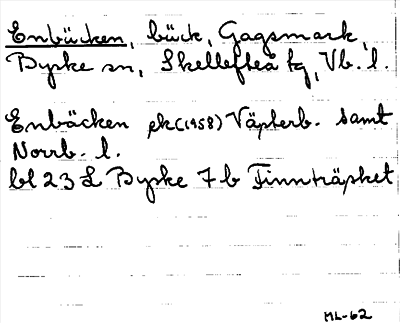 Enbäcken, bäck, Gagsmark,
Byske sn, Skellefteå tg, Vb. l.
Enbäcken ek(1958) Västerb. samt
Norrb. l.
bl 23 L Byske 7 b Finnträsket
ML-62